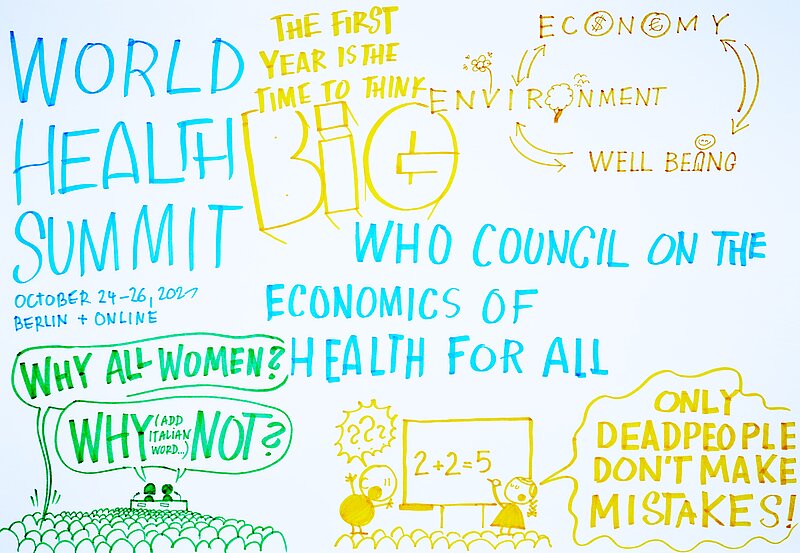 WORLD
HEALTH
SUMMIT
OCTOBER 24-26, 2021
BERLIN + ONLINE
THE FIRST
YEAR IS THE
TIME TO THINK
BIG
EC$N€MY
ENVIRONMENT
WELL BEING
WHO COUNCIL ON THE
ECONOMICS OF
HEALTH FOR ALL
WHY ALL WOMEN?
WHY (ADD ITALIAN WORD...) NOT?
???
2+2=5
ONLY
DEADPEOPLE
DON'T MAKE
MISTAKES!